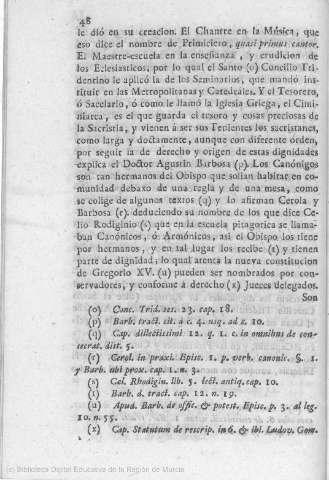 48
le dió en su creacion. El Chantre en la Música, que
eso dice el nombre de Primiciero, quasi primus cantor.
El Maestre-escuela en la enseñanza, y erudicion de
los Eclesiasticos, por lo qual el Santo (o) Concilio Tri-
dentino le aplicó la de los Seminarios, que mandó ins-
tituir en las Metropolitanas y Catedrales. Y el Tesorero,
ó Sacelario, ó como le llamó la Iglesia Griega, el Cimi-
niarca, es el que guarda el tesoro y cosas preciosas de
la Sacristia, y vienen á ser sus Tenientes los sacristanes,
como larga y doctamente, aunque con diferente órden,
por seguir la de derecho y origen de estas dignidades
explica el Doctor Agustin Barbosa (p). Los Canónigos
son tan hermanos del Obispo que solian habitar en co-
munidad debaxo de una regla y de una mesa, como
se colige de algunos textos (q) y lo afirman Cerola y
Barbosa (r). deduciendo su nombre de los que dice Ce-
lio Rodiginio (s) que en la escuela pitagorica se llama-
ban Canónicos, ó Armónicos, asi el Obispo los tiene
por hermanos, y en tal lugar los recibe (t) y tienen
parte de dignidad, lo qual atenta la nueva constitucion
de Gregorio XV. (u) pueden ser nombrados por con-
servadores, y conforme á derecho (x) Jueces delegados.
Son
(o) Conc. Trid. ses. 23. cap. 18.
(p) Barb. tract. cit. á c. 4. usq. ad x. 10.
(q) Cap. dilectissimi 12. q. 1. c. in omnibus de con-
secrat. dist. 5.
(r) Cerol. in praxi. Episc. 1. p. verb. canonic. §. 1.
y Barb. ubi prox. cap. 1. n. 3.
(s) Cel. Rhodigin. lib. 5. lect. antiq. cap. 10.
(t) Barb. d. tract. cap. 12. n. 19.
(u) Apud. Barb. de offic. & potest. Episc. p. 3. al leg.
10. n. 55.
(x) Cap. Statutum de rescrip. in 6. & ibi. Ludov. Gom.
(c) Biblioteca Digital Educativa de la Región de Murcia